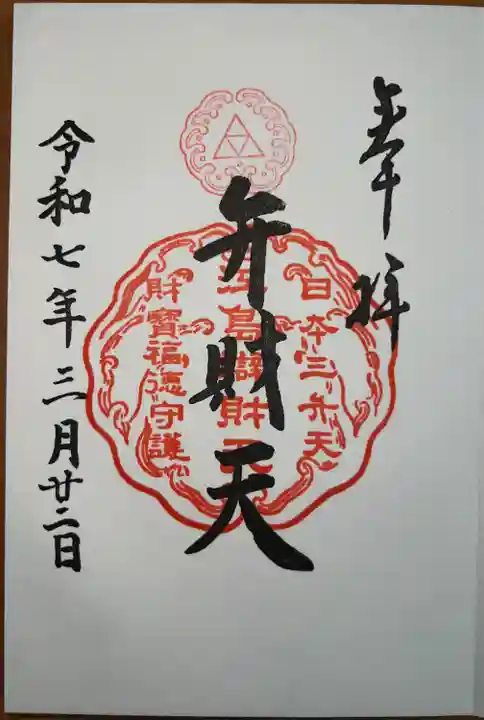 奉拝
日本三弁天
江島辯財天
弁財天
財寶福徳守護
令和七年三月廿二日